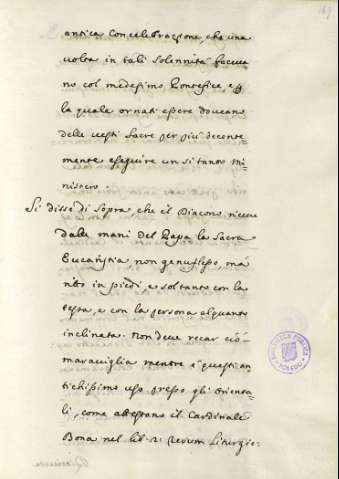 169
antica Concelebrazione, che una
volta in tali Solennità faceva=
no col medesimo Pontefice, e p
la quale ornati essere doveano
delle vesti Sacre per più decente=
mente eseguire un sì tanto mi=
nistero.
Si disse di Sopra che il Diacono riceve
dalle mani del Papa la Sacra
Eucaristia non genuflesso, ma
ritto in piedi, e soltanto con la
testa, e con la persona alquanto
inclinata. Non deve recar ciò
maraviglia mentre è questi an
tichissimo uso presso gli orienta=
li, come attestano il Cardinale
Bona nel lib. 2. Rerum Liturgic:
BIBLIOTECA PUBLICA
TOLEDO